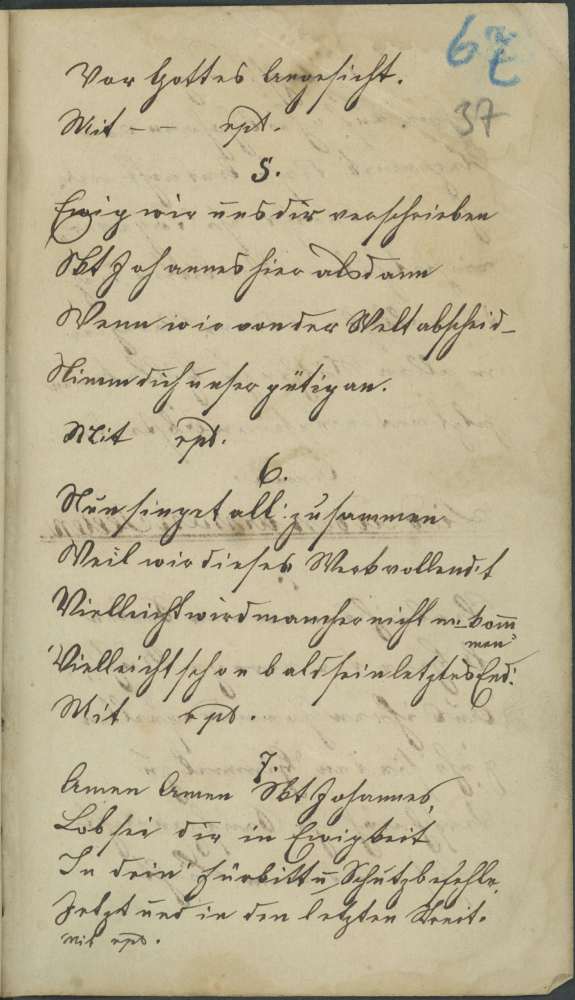 67
37
Vor Gottes Angesicht.
Mit – – rpt.
5.
Ewig wir uns dir verschrieben
Skt Johannes hier als dann
Wenn wir von der Welt abscheid–
Nimm dich unser gütig an.
Mit rpt.
6.
Nun singet all: zusammen
Weil wir dieses Werk vollend't
Vielleicht wird mancher nicht m: komm
men"
Vielleicht schon bald sein letztes End:
Mit rpt.
7.
Amen Amen Skt Johannes,
Lob sei dir in Ewigkeit
In dein' Fürbitt u Schutz befehle,
Jetzt und in den letzten Streit.
Mit rpt.